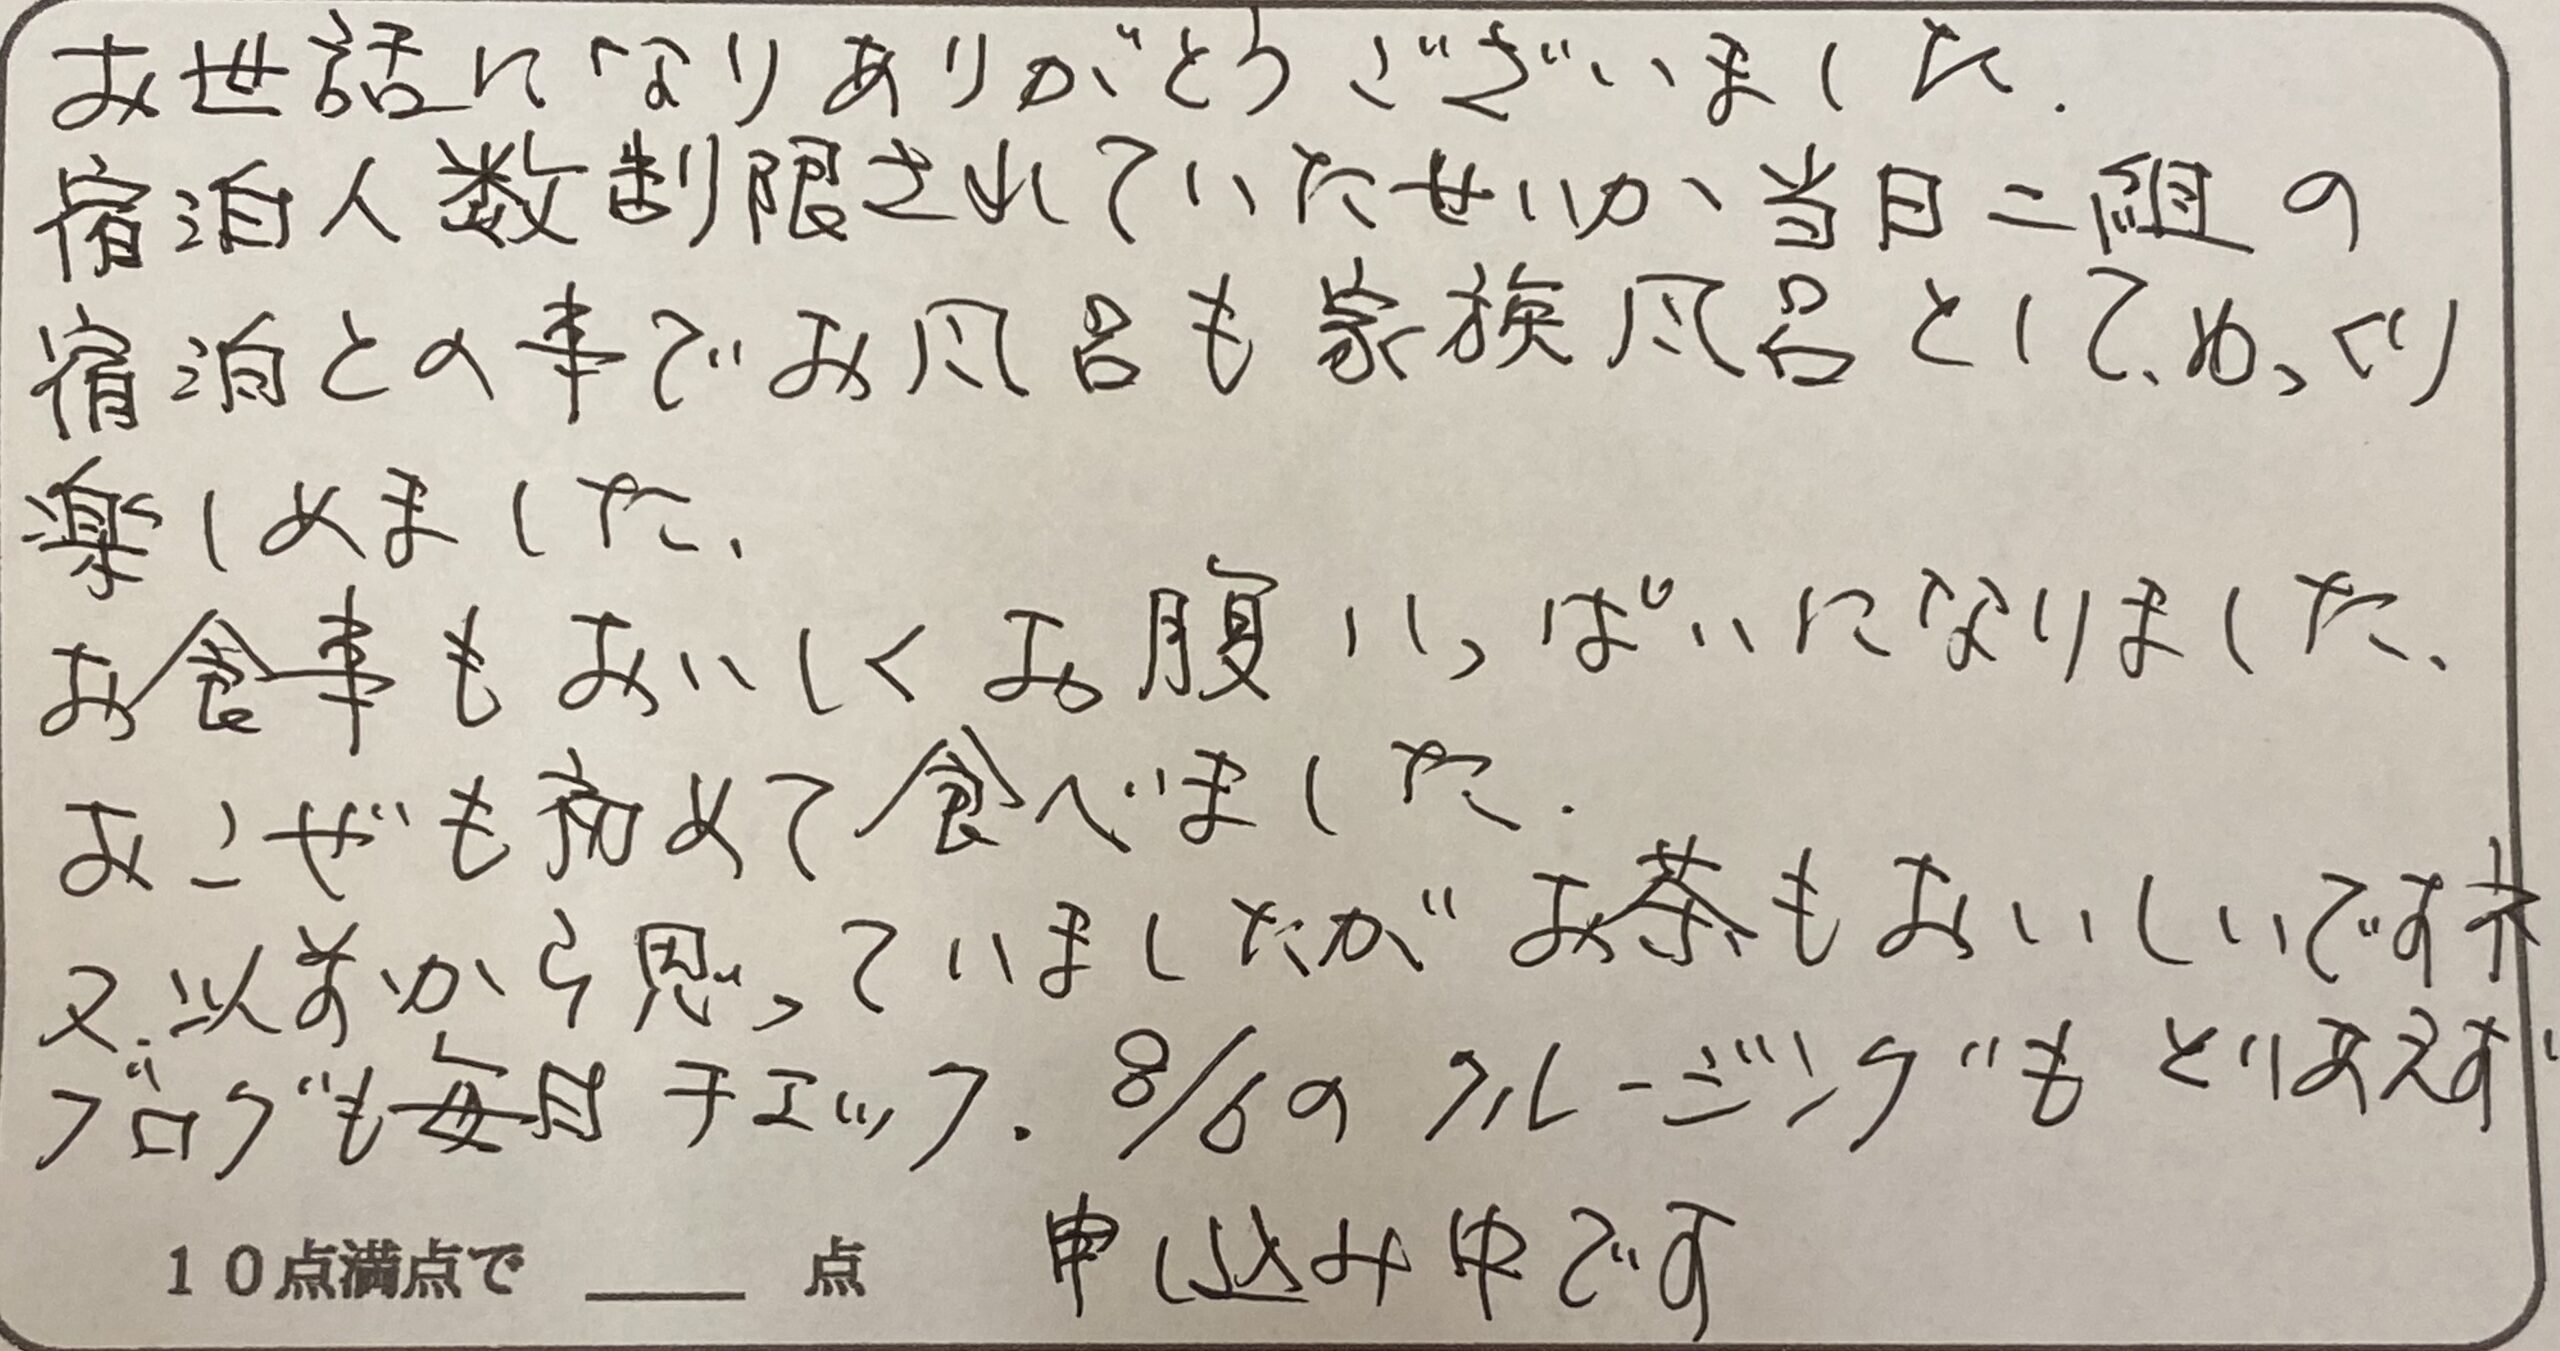 お世話になりありがとうございました.
宿泊人数制限されていたせいか、当日二組の
宿泊との事でお風呂も家族風呂として、ゆっくり
楽しめました、
お食事もおいしくお腹いっぱいになりました、
おこぜも初めて食べました.
又、以前から思っていましたがお茶もおいしいですネ
ブログも毎日チェック. 8/6のクルージングもとりあえず
申し込み中です
10点満点で ___ 点